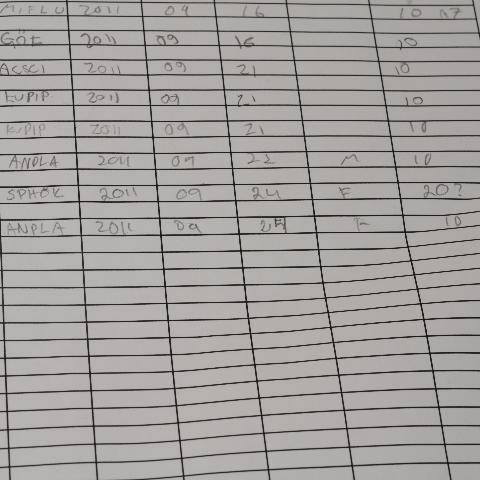 MIFLU 2011 09 16 10 07
2011 09 16 10
ACSCI 2011 09 21 10
EUPIP 2011 09 21 10
EUPIP 2011 09 21 10
ANPLA 2011 09 22 M 10
SPHOK 2011 09 24 F 20?
ANPLA 2011 09 F 10